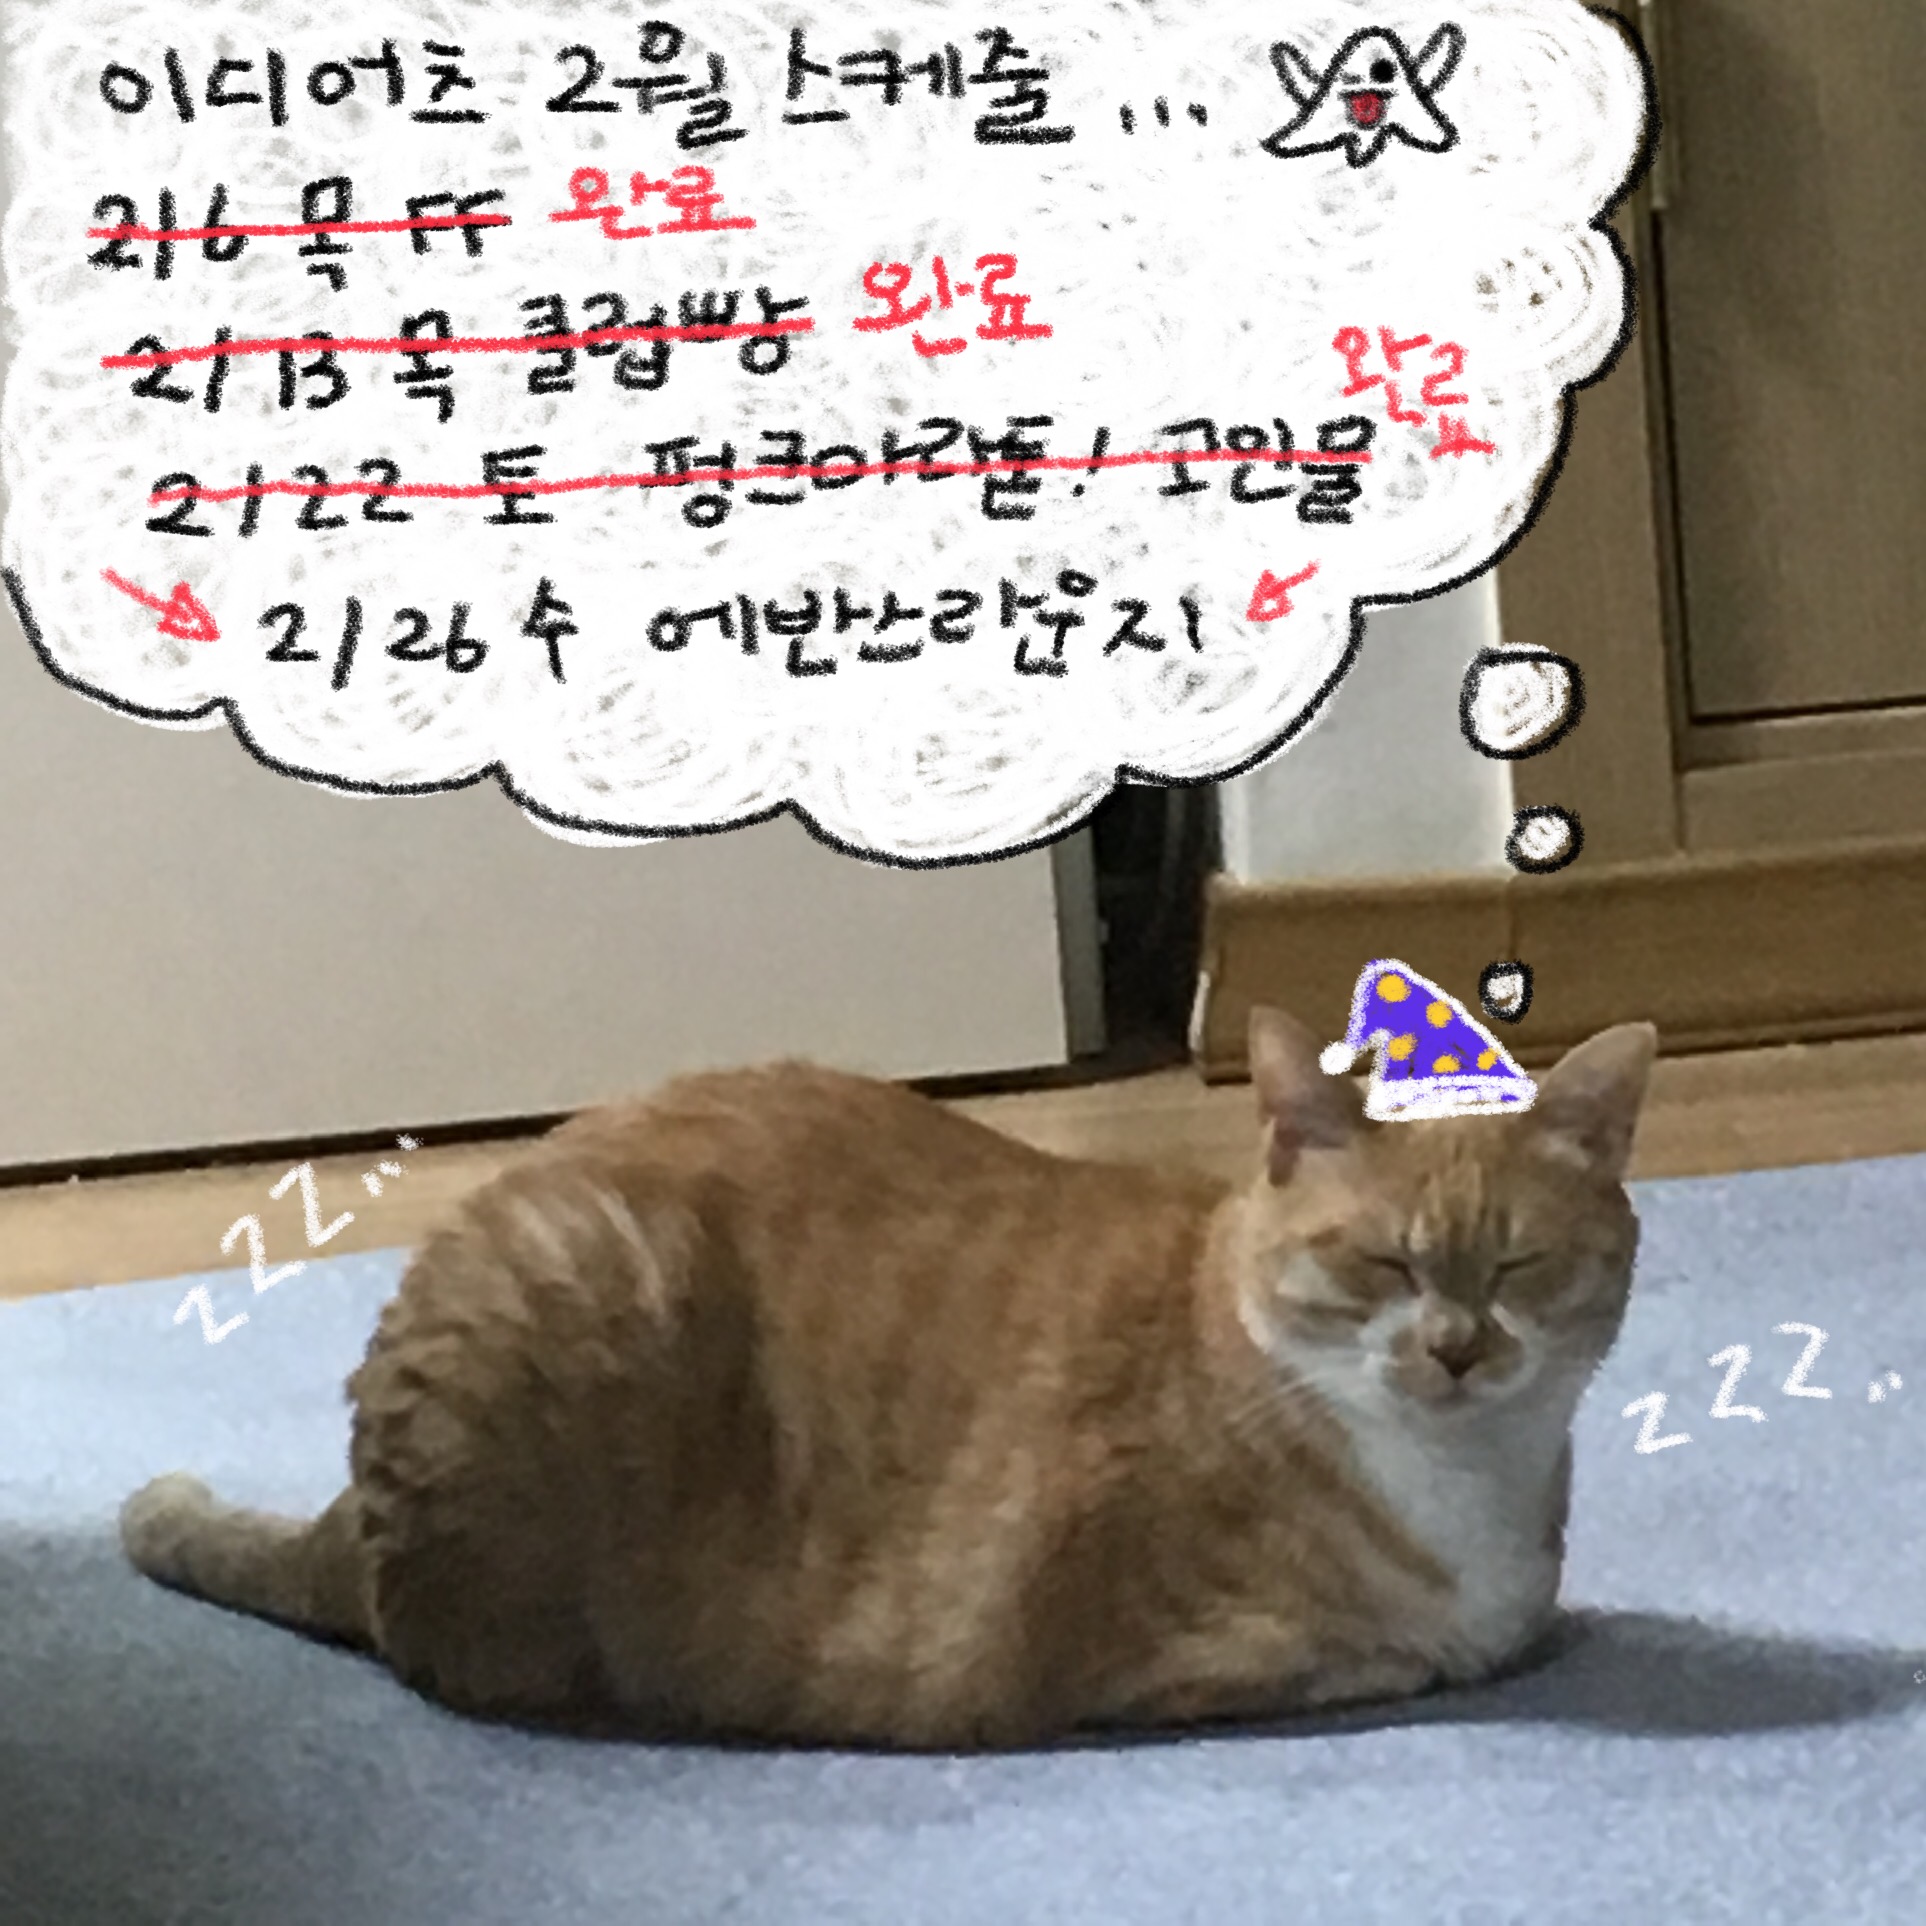 이디어츠 2월 스케줄...
2/6 목 FF 완료
2/13 목 클럽빵 완료
2/22 토 펑크마라톤! 고인물 완료
2/26 수 에반스라운지
zzz...
zzz..